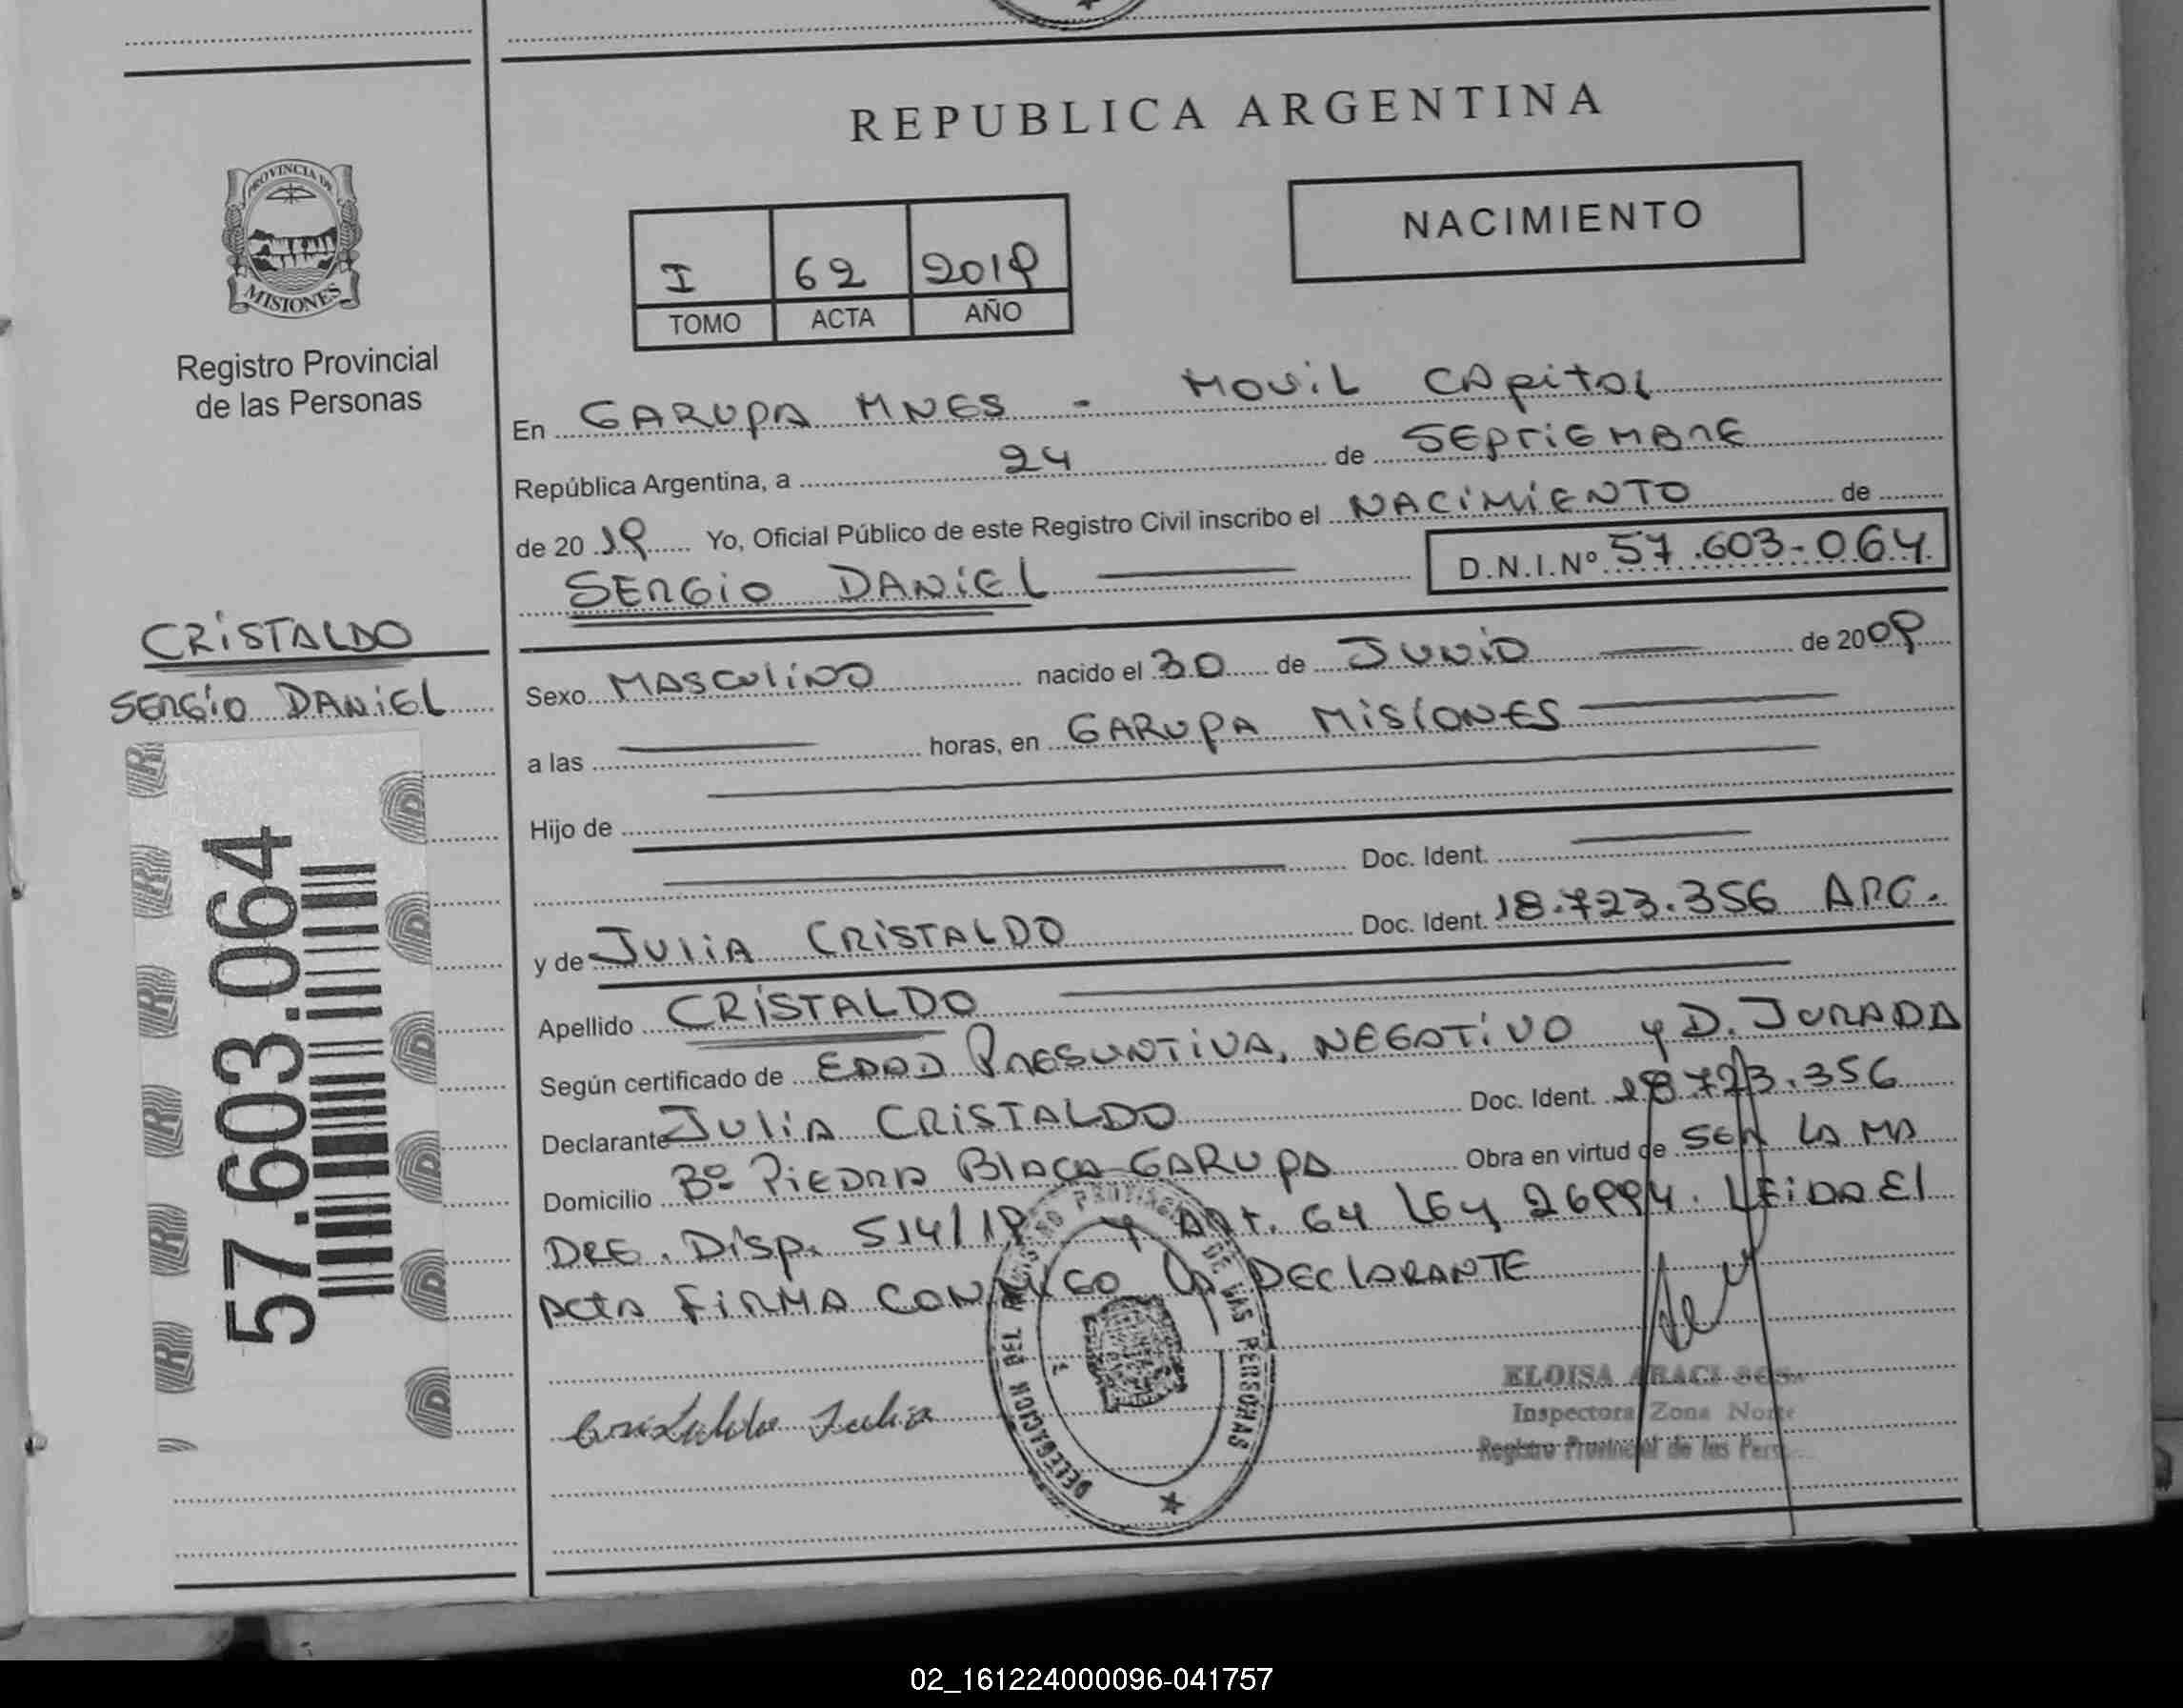 REPUBLICA ARGENTINA
PROVINCIA DE
MISIONES
Registro Provincial
de las Personas
NACIMIENTO
I 62 2019
TOMO ACTA AÑO
En GARUPA MNES - MOVIL CAPITAL
República Argentina, a 24 de SEPTIEMBRE
de 20 19 Yo, Oficial Público de este Registro Civil inscribo el NACIMIENTO de
SERGIO DANIEL D.N.I.Nº 57.603-064
CRISTALDO
SERGIO DANIEL
57.603.064
Sexo MASCULINO nacido el 30 de JUNIO de 2009
a las horas, en GARUPA MISIONES
Hijo de
Doc. Ident.
y de JULIA CRISTALDO Doc. Ident. 18.723.356 ARG.
Apellido CRISTALDO
Según certificado de EDAD PRESUNTIVA, NEGATIVO y D. JURADA
Declarante JULIA CRISTALDO Doc. Ident. 18.723.356
Domicilio Bº PIEDRA BLACA GARUPA Obra en virtud de SER LA MA
DRE. DISP. 514/19 Y ART. 64 LEY 26994. LEIDA EL
ACTA FIRMA CONMIGO LA DECLARANTE
Cristaldo Julia
DELEGACION DEL REGISTRO PROVINCIAL DE LAS PERSONAS
ELOISA ARACI
Inspectora Zona Norte
Registro Provincial de las Pers
02_161224000096-041757